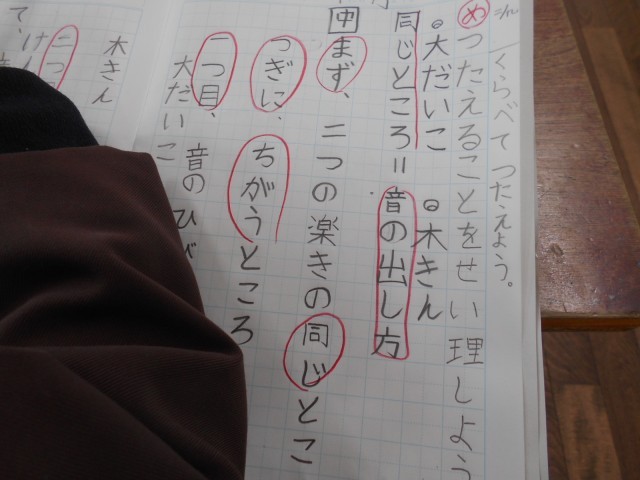 くらべてつたえよう。
め つたえることをせい理しよう
◦大だいこ ◦木きん
同じところ=音の出し方
中 まず、二つの楽きの同じとこ
つぎに、ちがうところ
二つ目、音のひび
大だいこ
木きん
二つ